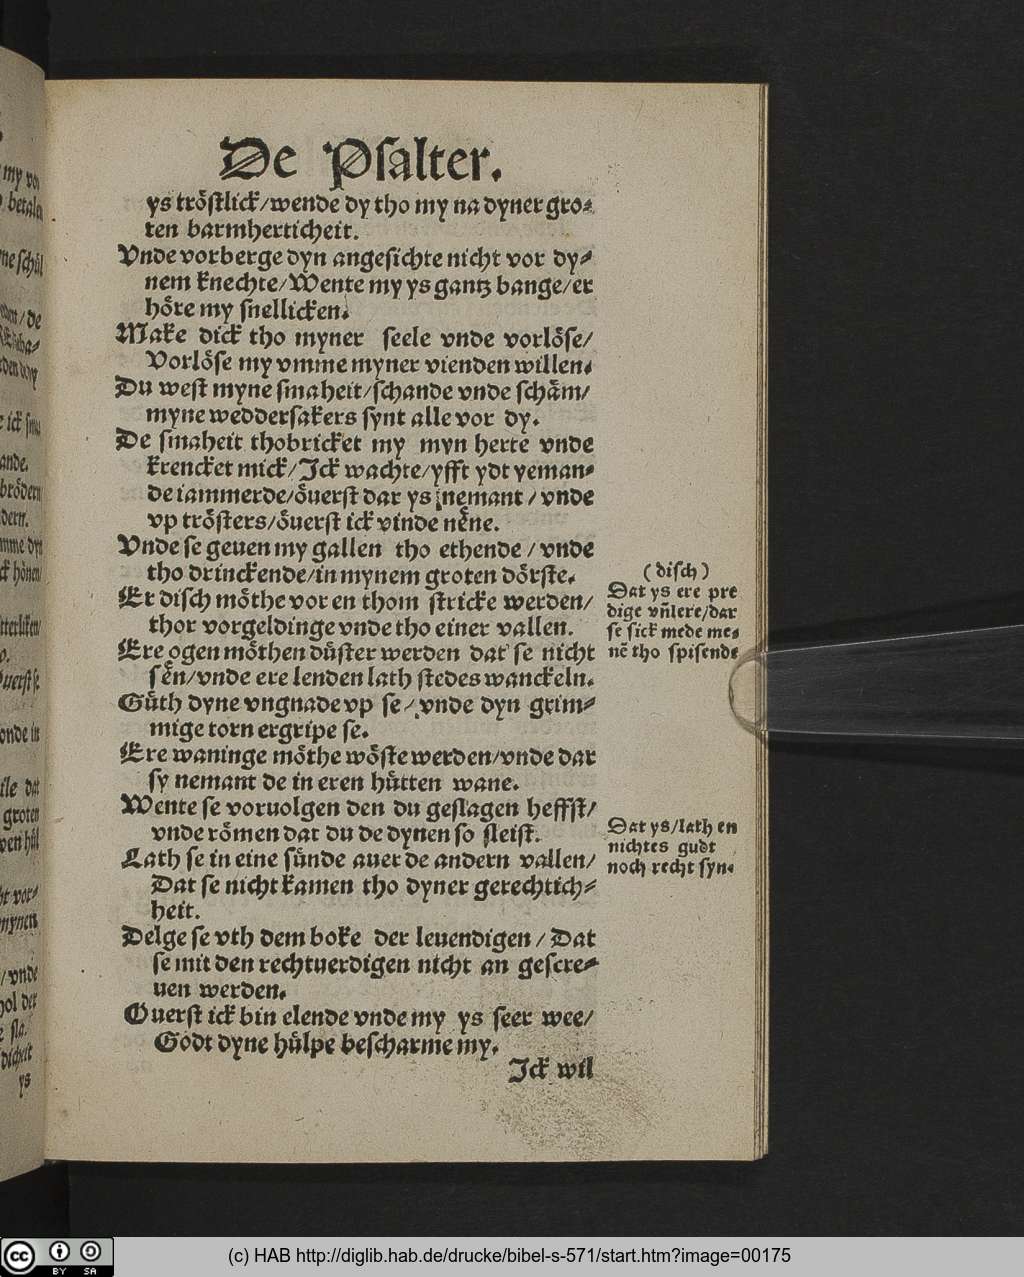 De Psalter.
ys tröstlick/wende dy tho my na dyner gro⸗
ten barmherticheit.
Vnde vorberge dyn angesichte nicht vor dy⸗
nem knechte/Wente my ys gantz bange/er
höre my snellicken.
Make dick tho myner seele vnde vorlöse/
Vorlöse my vmme myner vienden willen.
Du west myne smaheit/schande vnde schäm/
myne weddersakers synt alle vor dy.
De smaheit thobricket my myn herte vnde
krencket mick/Ick wachte/yfft ydt yeman⸗
de iammerde/överst dar ys nemant/vnde
vp trösters/överst ick vinde nene.
Vnde se geuen my gallen tho ethende/vnde
tho drinckende/in mynem groten dörste.
Er disch möthe vor en thom stricke werden/
thor vorgeldinge vnde tho einer vallen.
Ere ogen möthen düster werden dat se nicht
sen/vnde ere lenden lath stedes wanckeln.
Güth dyne vngnade vp se/vnde dyn grim⸗
mige torn ergripe se.
Ere waninge möthe wöste werden/vnde dar
sy nemant de in eren hütten wane.
Wente se voruolgen den du geslagen heffst/
vnde römen dat du de dynen so sleist.
Lath se in eine sünde auer de andern vallen/
Dat se nicht kamen tho dyner gerechtich⸗
heit.
Delge se vth dem boke der leuendigen/Dat
se mit den rechtuerdigen nicht an gescre⸗
uen werden.
Ouerst ick bin elende vnde my ys seer wee/
Godt dyne hülpe bescharme my.
Ick wil
(disch)
Dat ys ere pre
dige vñ lere/dar
se sick mede me⸗
nē tho spisende
Dat ys/lath en
nichtes gudt
noch recht syn.
(c) HAB http://diglib.hab.de/drucke/bibel-s-571/start.htm?image=00175
cc BY SA